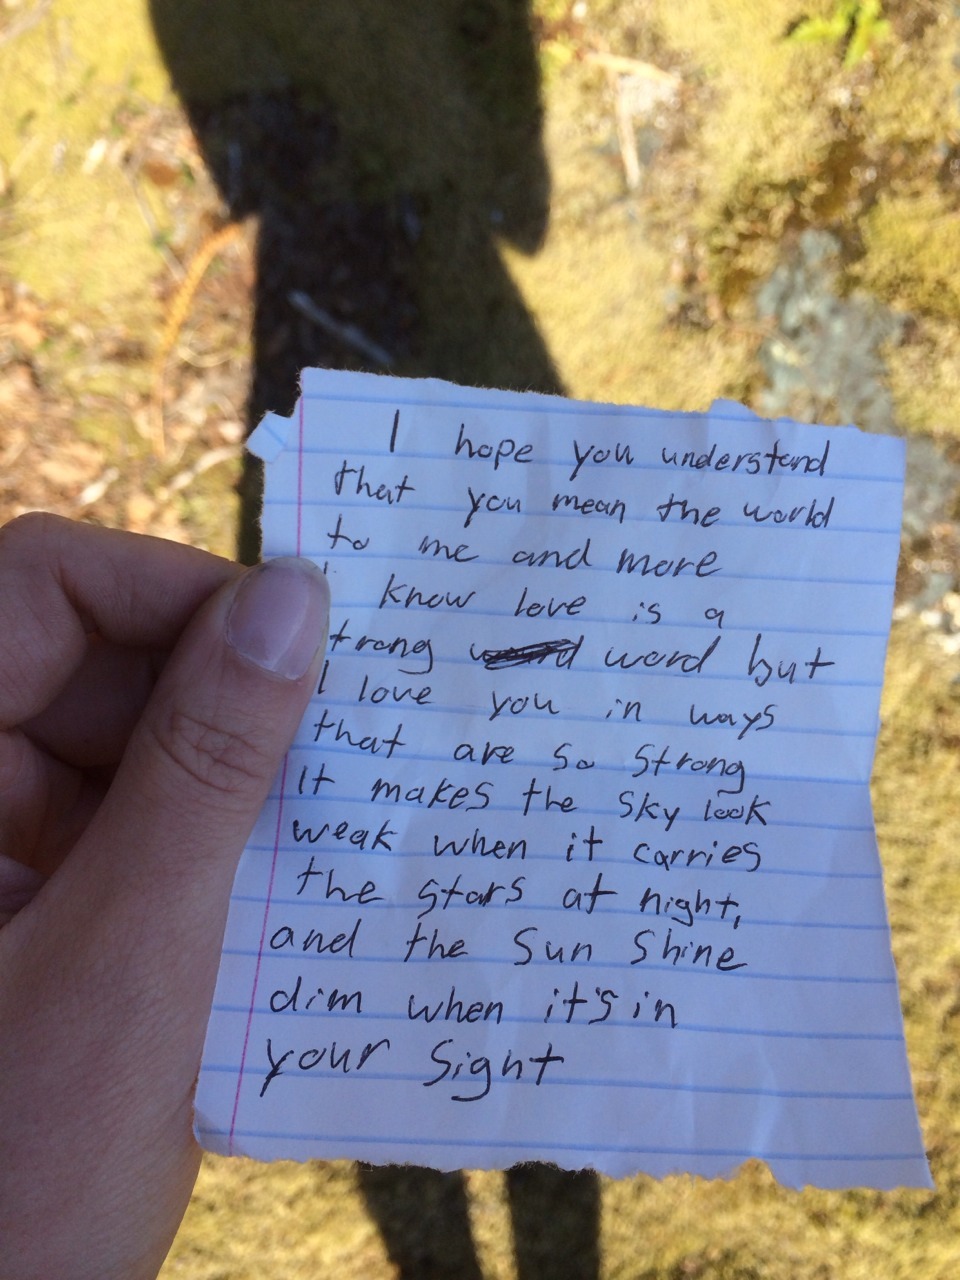 I hope you understand
that you mean the world
to me and more
I know love is a
trong word but
I love you in ways
that are so strong
It makes the sky look
weak when it carries
the stars at night,
and the Sun Shine
dim when it's in
your Sight